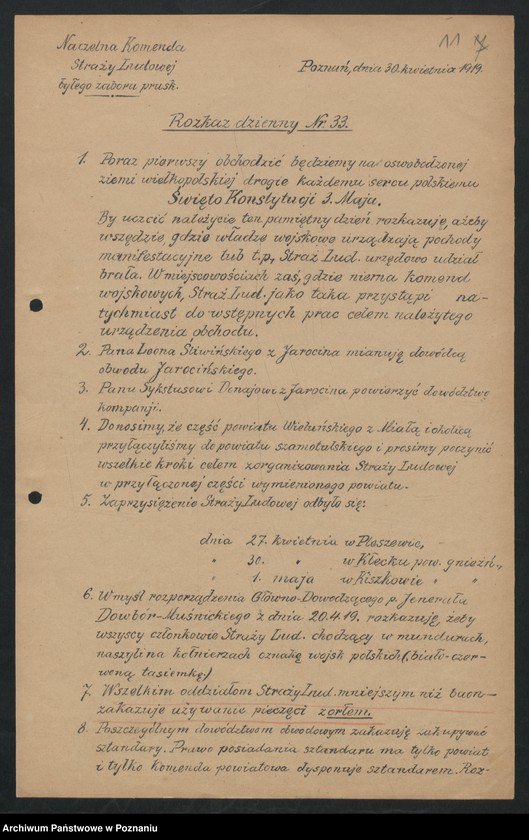 Naczelna Komenda
Straży Ludowej
byłego zaboru prusk.
11
Poznań, dnia 30. kwietnia 1919.
Rozkaz dzienny Nr. 33.
1. Poraz pierwszy obchodzić będziemy na oswobodzonej
ziemi wielkopolskiej drogie każdemu sercu polskiemu
Święto Konstytucji 3. Maju.
By uczcić należycie ten pamiętny dzień rozkazuję, ażeby
wszędzie, gdzie władze wojskowe urządzają pochody
manifestacyjne lub t.p., Straż Lud. urzędowo udział
brała. W miejscowościach zaś, gdzie niema komend
wojskowych, Straż Lud. jako taka przystąpi na-
tychmiast do wstępnych prac celem należytego
urządzenia obchodu.
2. Pana Leona Śliwińskiego z Jarocina mianuję dowódcą
obwodu Jarocińskiego.
3. Panu Sykstusowi z Jarocina powierzyć dowództwo
kompanji.
4. Donosimy, że część powiatu Wieluńskiego z Miałą i okolicą
przyłączyliśmy do powiatu szamotulskiego i prosimy poczynić
wszelkie kroki celem zorganizowania Straży Ludowej
w przyłączonej części wymienionego powiatu.
5. Zaprzysiężenie Straży Ludowej odbyło się:
dnia 27. kwietnia w Pleszewie,
" 30. " w Kłecku pow. gnieźń.,
" 1. maja w Kiszkowie " "
6. W myśl rozporządzenia Główno-Dowodzącego p. Jenerała
Dowbór-Muśnickiego z dnia 20.4.19. rozkazuję, żeby
wszyscy członkowie Straży Lud. chodzący w mundurach,
naszyli na kołnierzach oznakę wojsk polskich (biało-czer-
woną tasiemkę.)
7. Wszelkim oddziałom Straży Lud. mniejszym niż baon-
zakazuje używanie pieczęci z orłem.
8. Poszczególnym dowództwom obwodowym zakazuję zakupywać
sztandary. Prawo posiadania sztandaru ma tylko powiat
i tylko komenda powiatowa dysponuje sztandarem. Roz-
Archiwum Państwowe w Poznaniu